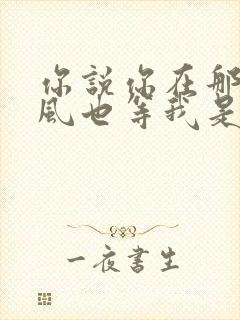 你說你在那
風也等我是
一夜書生